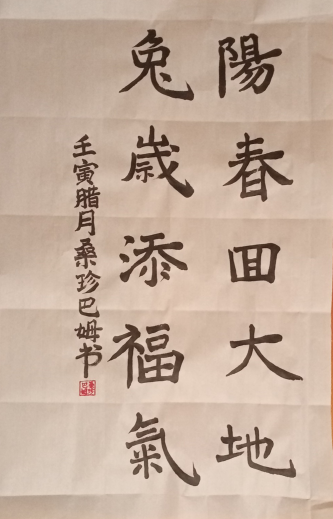 陽春回大地
兔歳添福氣
壬寅腊月桑珍巴姆书